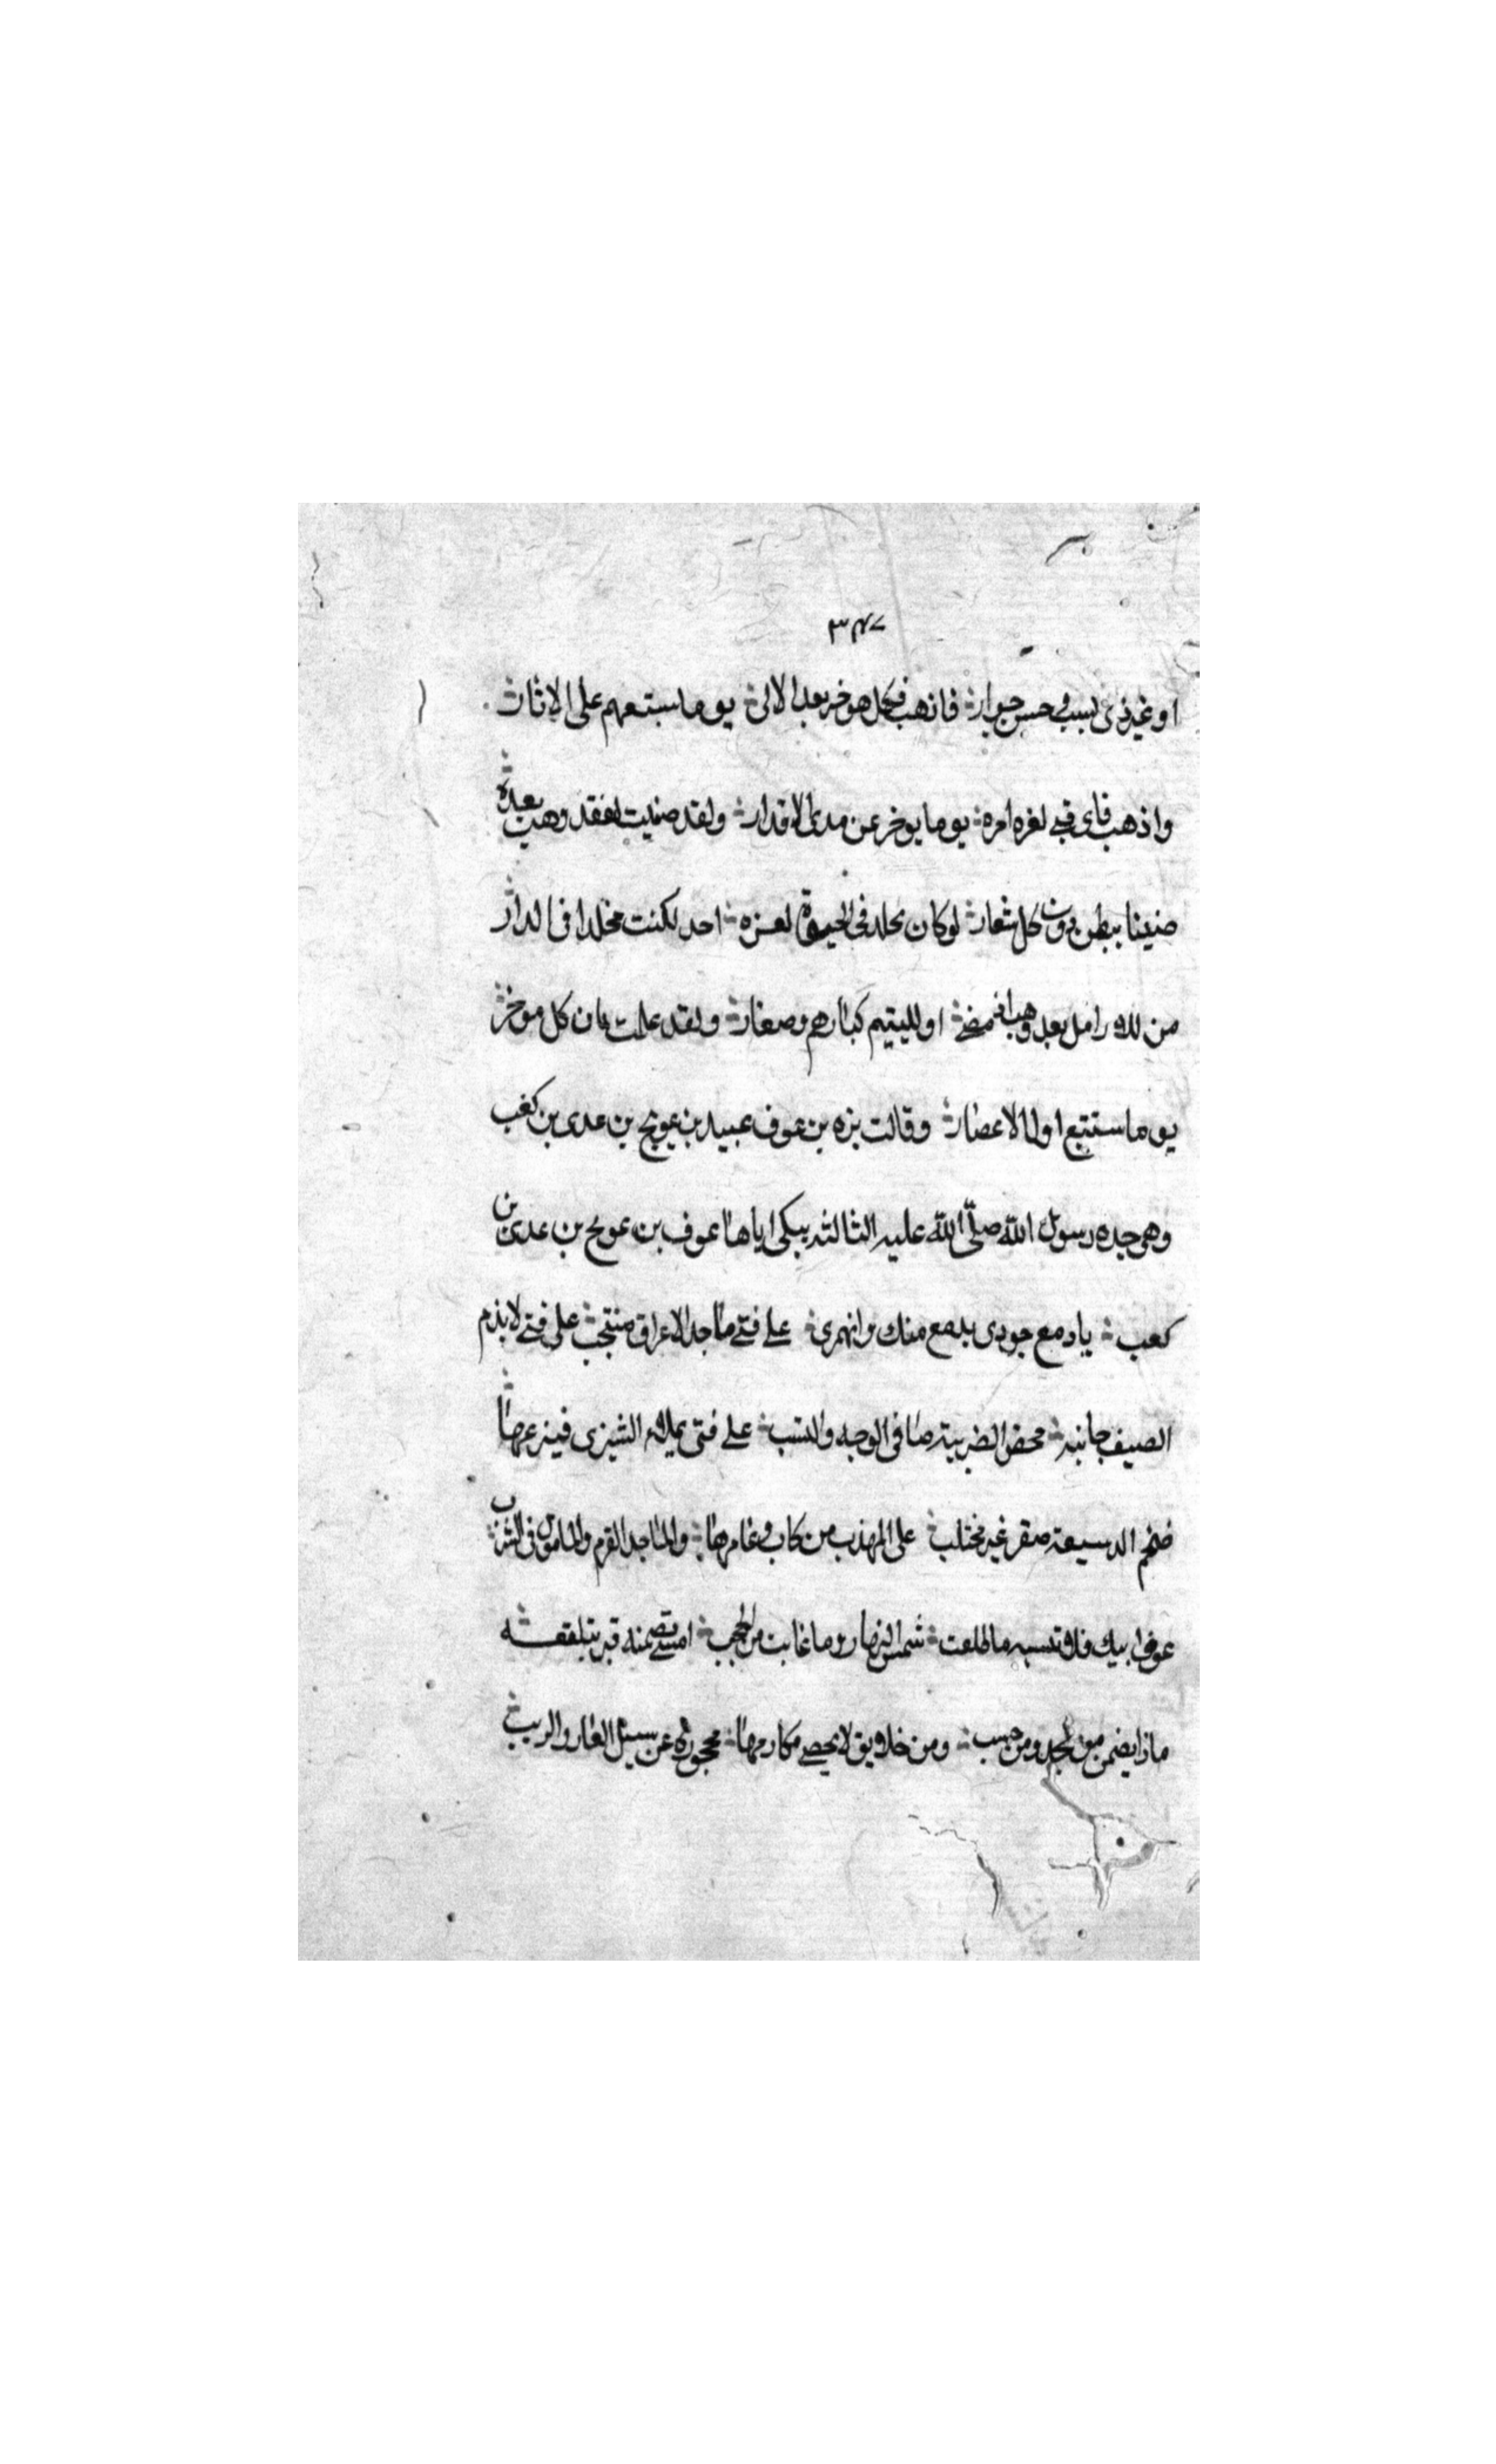 ٣٤٧
او غير ذى نسب فى حسن جوار فاذهب فكل هو خر بعد الالى يوما سيتبعهم على الاثار
واذهب فاى فتى لغره امره يوما يوخر عن مدى الاقدار ولقد ضنيت لفقد وهب بعده
ضنينا ببطن دون كل شعار لو كان يخلد فى الحيوة لعزه احد لكنت مخلدا فى الدار
من للارامل بعد وهب اذ مضى او لليتيم كبارهم وصغار ولقد علمت بان كل موخر
يوما ستتبع اولا لاعصار وقالت بزه بن عوف عبيد بن عويج بن عدى بن كعب
وهى جده رسول الله صلّى الله عليه الثالثه يبكى اياها عوف بن عويج بن عدى بن
كعب يا دمع جودى بدمع منك وانهمرى على فتى ماجد الاعراق منتجب على فتى لا يذم
الضيف جانبه محض الضريبة صافى الوجه والنسب على فتى يملاء الشيزى فيزعها
ضخم الدسيعة صقر غير مختلب على المهذب من كاب وغامرها والماجد القرم والمامول فى الشزب
عوف ابيك فلا تنسيه ما طلعت شمس النهار وما غابت من الحجب امسى تضمنه قبر ببلقعه
ماذا يضمن من مجد ومن حسب ومن خلايق لا يحصى مكارمها محجوزة عن سبيل العار والريب